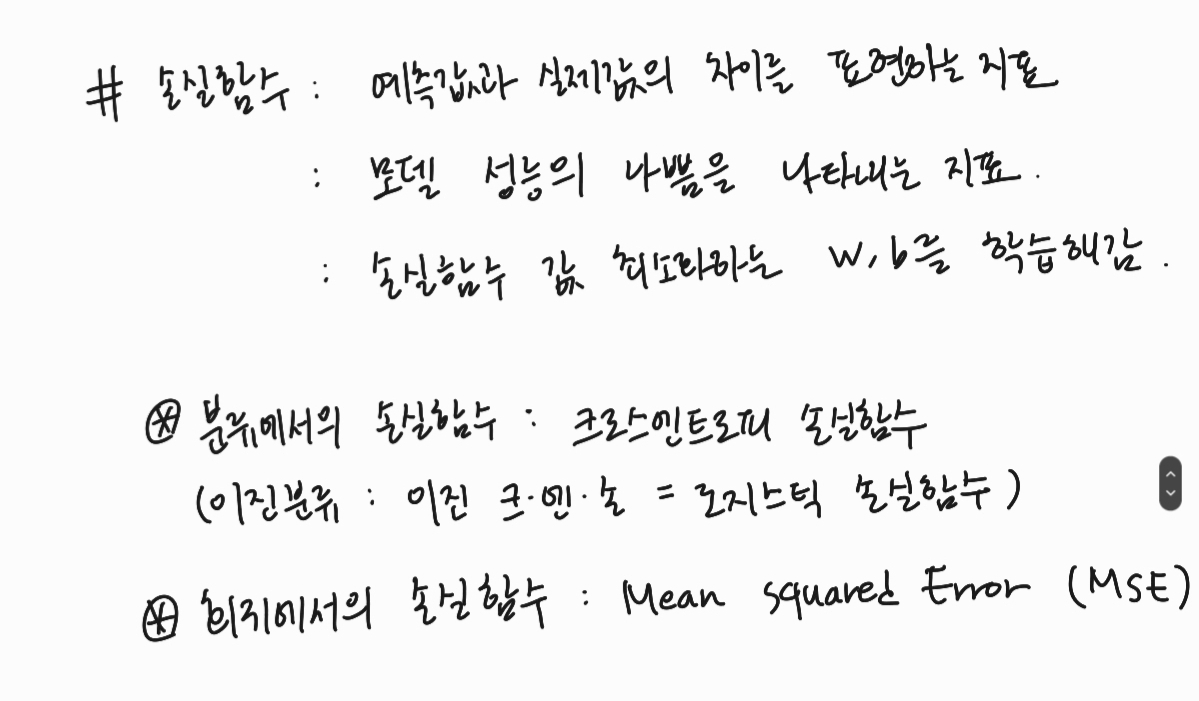 # 손실함수 : 예측값과 실제값의 차이를 표현하는 지표
: 모델 성능의 나쁨을 나타내는 지표.
: 손실함수 값 최소화하는 w, b를 학습해감.
⊛ 분류에서의 손실함수 : 크로스엔트로피 손실함수
(이진분류 : 이진 크·엔·손 = 로지스틱 손실함수)
⊛ 회귀에서의 손실함수 : Mean squared Error (MSE)